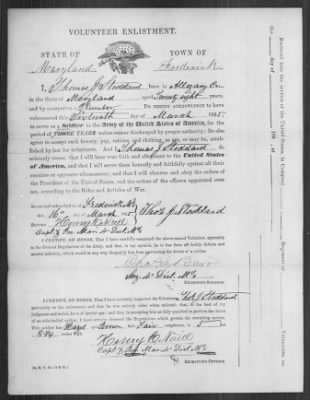 VOLUNTEER ENLISTMENT.
STATE OF TOWN OF
Maryland Frederick
I, Thomas J Stoddard born in Allegany Co
in the State of Maryland aged Twenty eight years,
and by occupation a Plumber Do HEREBY ACKNOWLEDGE to have
volunteered this Sixteenth day of March 1865
to serve as a Soldier in the Army of the United States of America, for the
period of THREE YEARS unless sooner discharged by proper authority: Do also
agree to accept such bounty, pay, rations, and clothing, as are, or may be, established
by law for volunteers. And I, Thomas J Stoddard do solemnly
swear, that I will bear true faith and allegiance to the United States
of America, and that I will serve them honestly and faithfully against all their
enemies or opposers whomsoever; and that I will observe and obey the orders of
the President of the United States, and the orders of the officers appointed over
me, according to the Rules and Articles of War.
Sworn and subscribed to, at Frederick Md
this 16th day of March 1865 Thos J Stoddard
BEFORE Henry
Capt & Pro Mar 4 Dist Md
I CERTIFY, ON HONOR, That I have carefully examined the above-named Volunteer, agreeably
to the General Regulations of the Army, and that, in my opinion, he is free from all bodily defects and
mental infirmity, which would in any way disqualify him from performing the duties of a soldier.
4th Dist. Md
EXAMINING SURGEON.
I CERTIFY, ON HONOR, That I have minutely inspected the Volunteer, Thos J Stoddard
previously to his enlistment, and that he was entirely sober when enlisted; that, to the best of my
judgment and belief, he is of lawful age; and that, in accepting him as duly qualified to perform the
duties of an able-bodied soldier, I have strictly observed the Regulations which govern the recruiting service.
This soldier has Hazel eyes, Brown hair, Fair complexion, is 5 feet
8 3/4 inches high.
Henry
Capt & Pro Mar 4 Dist Md
RECRUITING OFFICER.